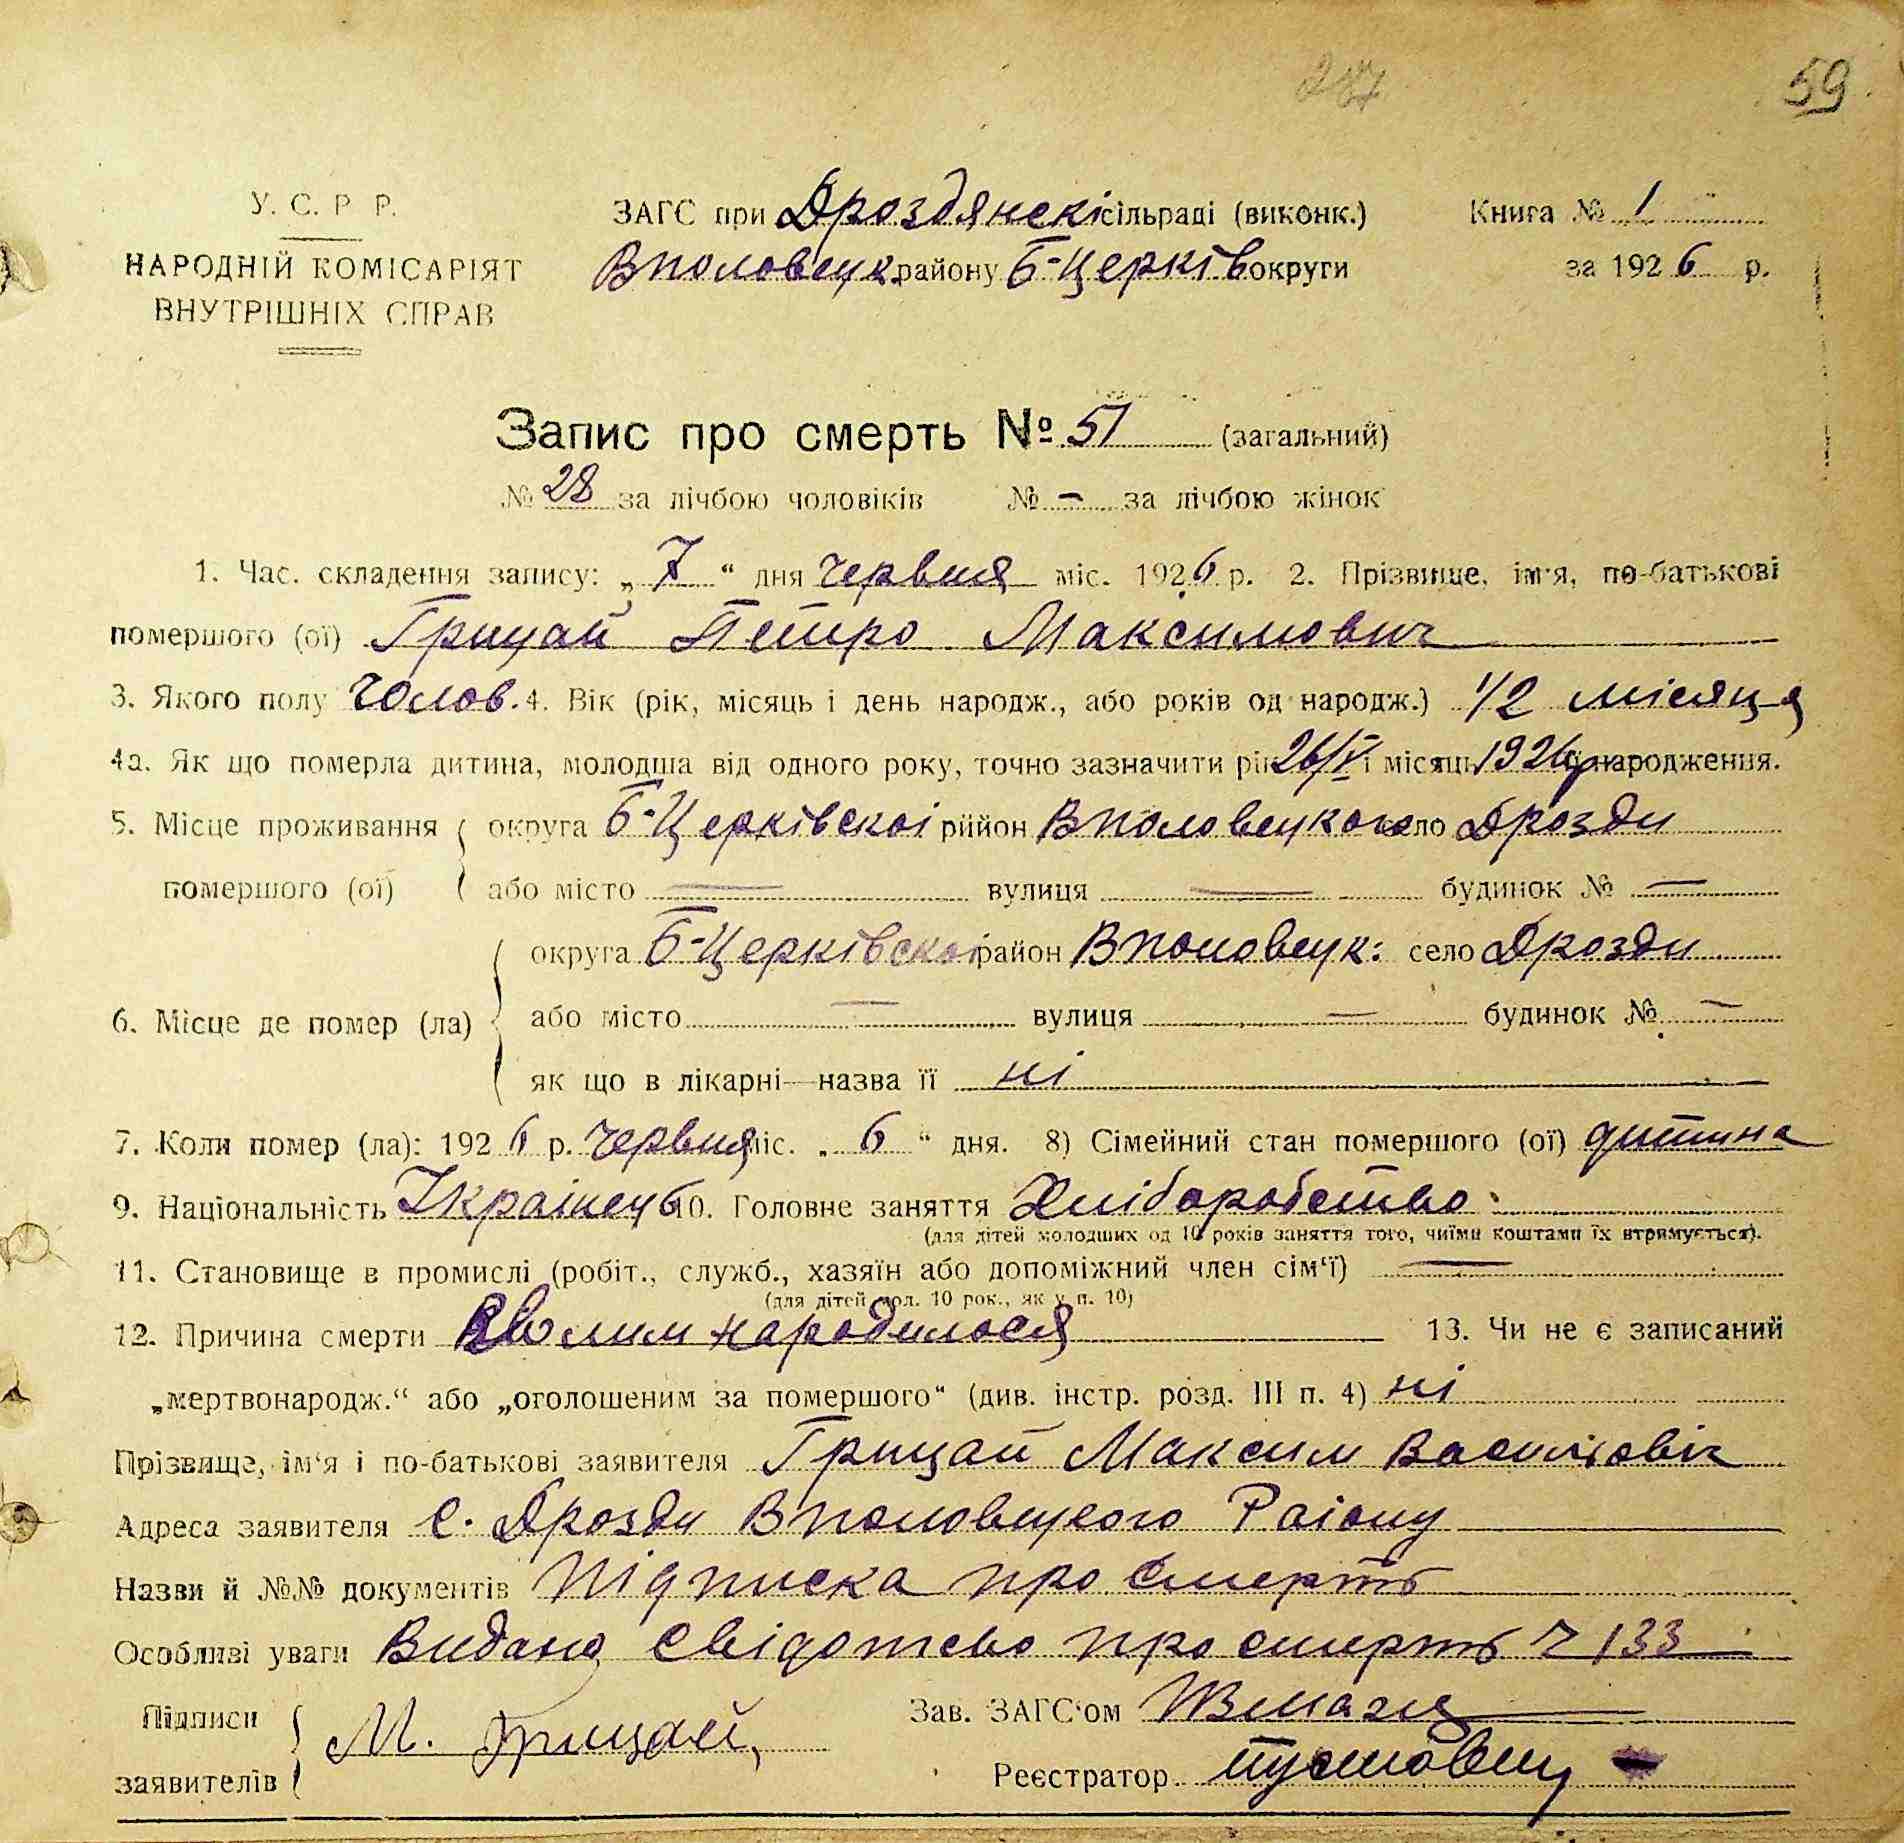 59
У. С. Р Р.
ЗАГС при Дроздянскі сільраді (виконк.) Книга № 1
НАРОДНІЙ КОМІСАРІЯТ
Вполовецк. району Б-Церків округи за 1926 р.
ВНУТРІШНІХ СПРАВ
Запис про смерть № 51 (загальний)
№ 28 за лічбою чоловіків № – за лічбою жінок
1. Час. складення запису: „ 7 “ дня червня міс. 1926 р. 2. Прізвище, ім'я, по-батькові
помершого (ої) Грицай Петро Максимович
3. Якого полу чолов. 4. Вік (рік, місяць і день народж., або років од народж.) 1/2 місяця
4а. Як що померла дитина, молодша від одного року, точно зазначити рік 26/V і місяць 1926р її народження.
5. Місце проживання округа Б-Церківскоі рййон Вполовецкого село Дрозди
помершого (ої) або місто — вулиця — будинок № —
округа Б-Церківскоі район Вполовецк: село Дрозди
6. Місце де помер (ла) або місто — вулиця — будинок № —
як що в лікарні—назва її ні
7. Коли помер (ла): 1926 р. червня міс. „ 6 “ дня. 8) Сімейний стан помершого (ої) дитина
9. Національність Украінець 10. Головне заняття Хліборобство.
(для дітей молодших од 10 років заняття того, чиїми коштами їх втримується).
11. Становище в промислі (робіт., служб., хазяїн або допоміжний член сім‘ї) —
(для дітей мол. 10 рок., як у п. 10)
12. Причина смерти Кволим народилося 13. Чи не є записаний
„мертвонародж.“ або „оголошеним за помершого“ (див. інстр. розд. III п. 4) ні
Прізвище, ім‘я і по-батькові заявителя Грицай Максим Васильовіч
Адреса заявителя с. Дрозди Вполовецкого Раіону
Назви й №№ документів Підписка про смерть
Особливі уваги Видано свідотсво про смерть ч 133
Підписи М. Грицай, Зав. ЗАГС‘ом
заявителів Реєстратор